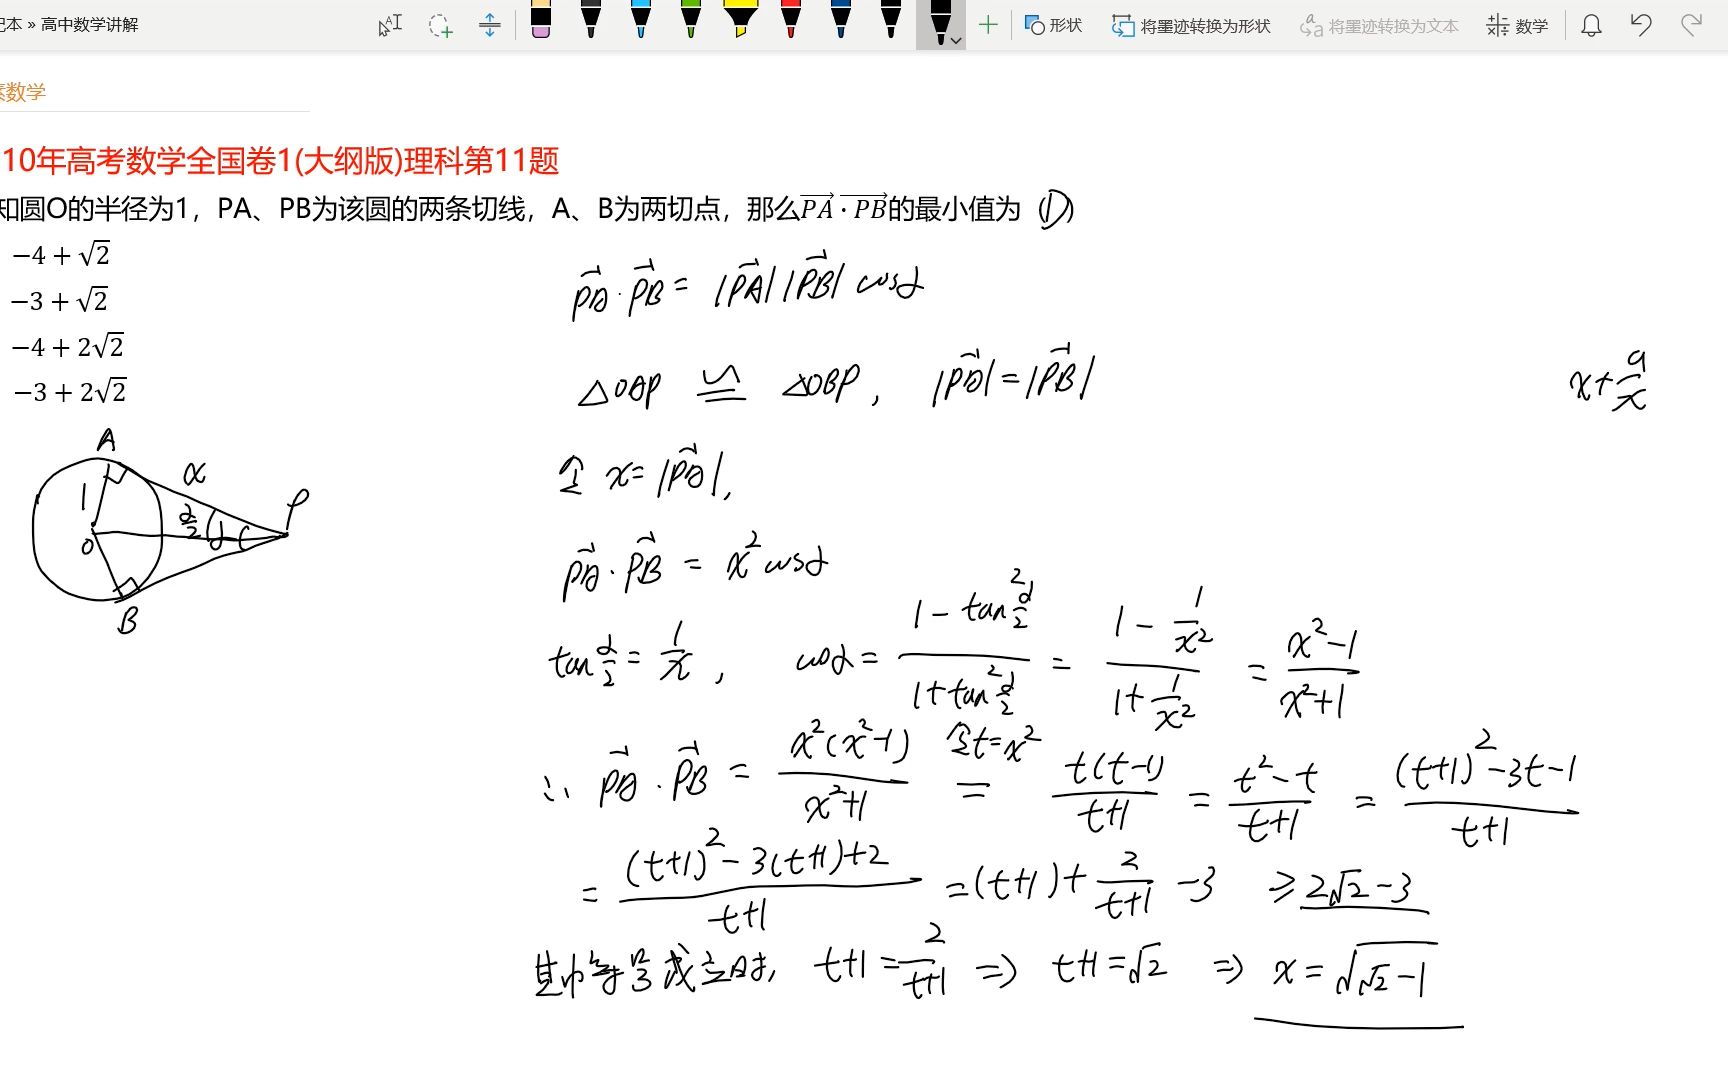 记本 » 高中数学讲解
形状 将墨迹转换为形状 将墨迹转换为文本 数学
素数学
10年高考数学全国卷1(大纲版)理科第11题
知圆O的半径为1，PA、PB为该圆的两条切线，A、B为两切点，那么PA⃗·PB⃗的最小值为（D）
−4 + √2
−3 + √2
−4 + 2√2
−3 + 2√2
PA⃗·PB⃗ = |PA⃗||PB⃗| cosα
△OAP ≌ △OBP, |PA⃗| = |PB⃗|
x + a/x
A
x
1
α/2
α
P
O
B
令 x = |PA⃗|,
PA⃗·PB⃗ = x² cosα
tan α/2 = 1/x, cosα = (1 − tan² α/2)/(1 + tan² α/2) = (1 − 1/x²)/(1 + 1/x²) = (x² − 1)/(x² + 1)
∴ PA⃗·PB⃗ = x²(x² − 1)/(x² + 1) 令t = x² = t(t − 1)/(t + 1) = (t² − t)/(t + 1) = ((t+1)² − 3t − 1)/(t + 1)
= ((t+1)² − 3(t+1) + 2)/(t+1) = (t+1) + 2/(t+1) − 3 ≥ 2√2 − 3
其中等号成立时, t+1 = 2/(t+1) ⇒ t+1 = √2 ⇒ x = √(√2 − 1)